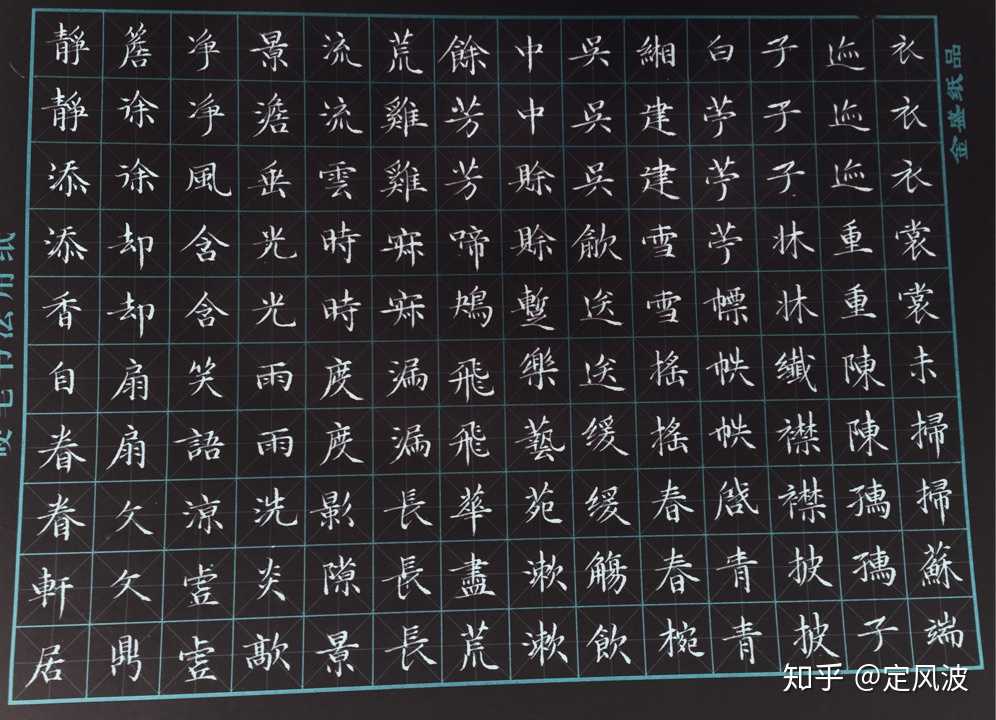 衣衣衣裳裳未掃掃蘇端
迹迹迹重重陳陳孺孺子
子子子牀牀纖襟襟披披
白苧苧苧幖帙帙啟青青
緗建建雪雪搖搖春春椀
吳吳吳歙送送緩緩觴飲
中中賒賒蹔樂藝苑漱漱
餘芳芳啼鳩飛飛華盡荒
荒雞雞寐寐漏漏長長長
流流雲時時度度影隙景
景澹垂光光雨雨洗炎歊
净净風含含笑語涼虛虛
簷徐徐却却扇扇久久鼎
靜靜添添香自眷眷軒居
金盛纸品
知乎 @定风波